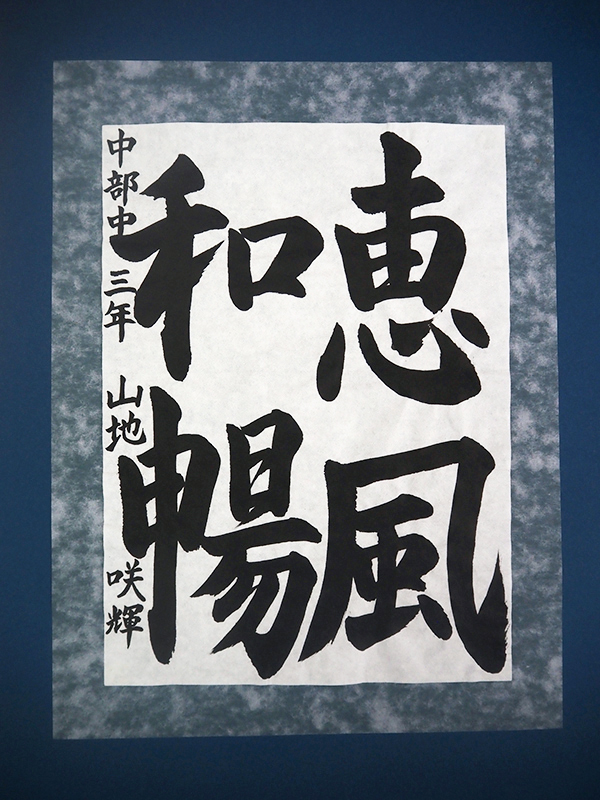 恵風
和暢
中部中 三年 山地 咲輝